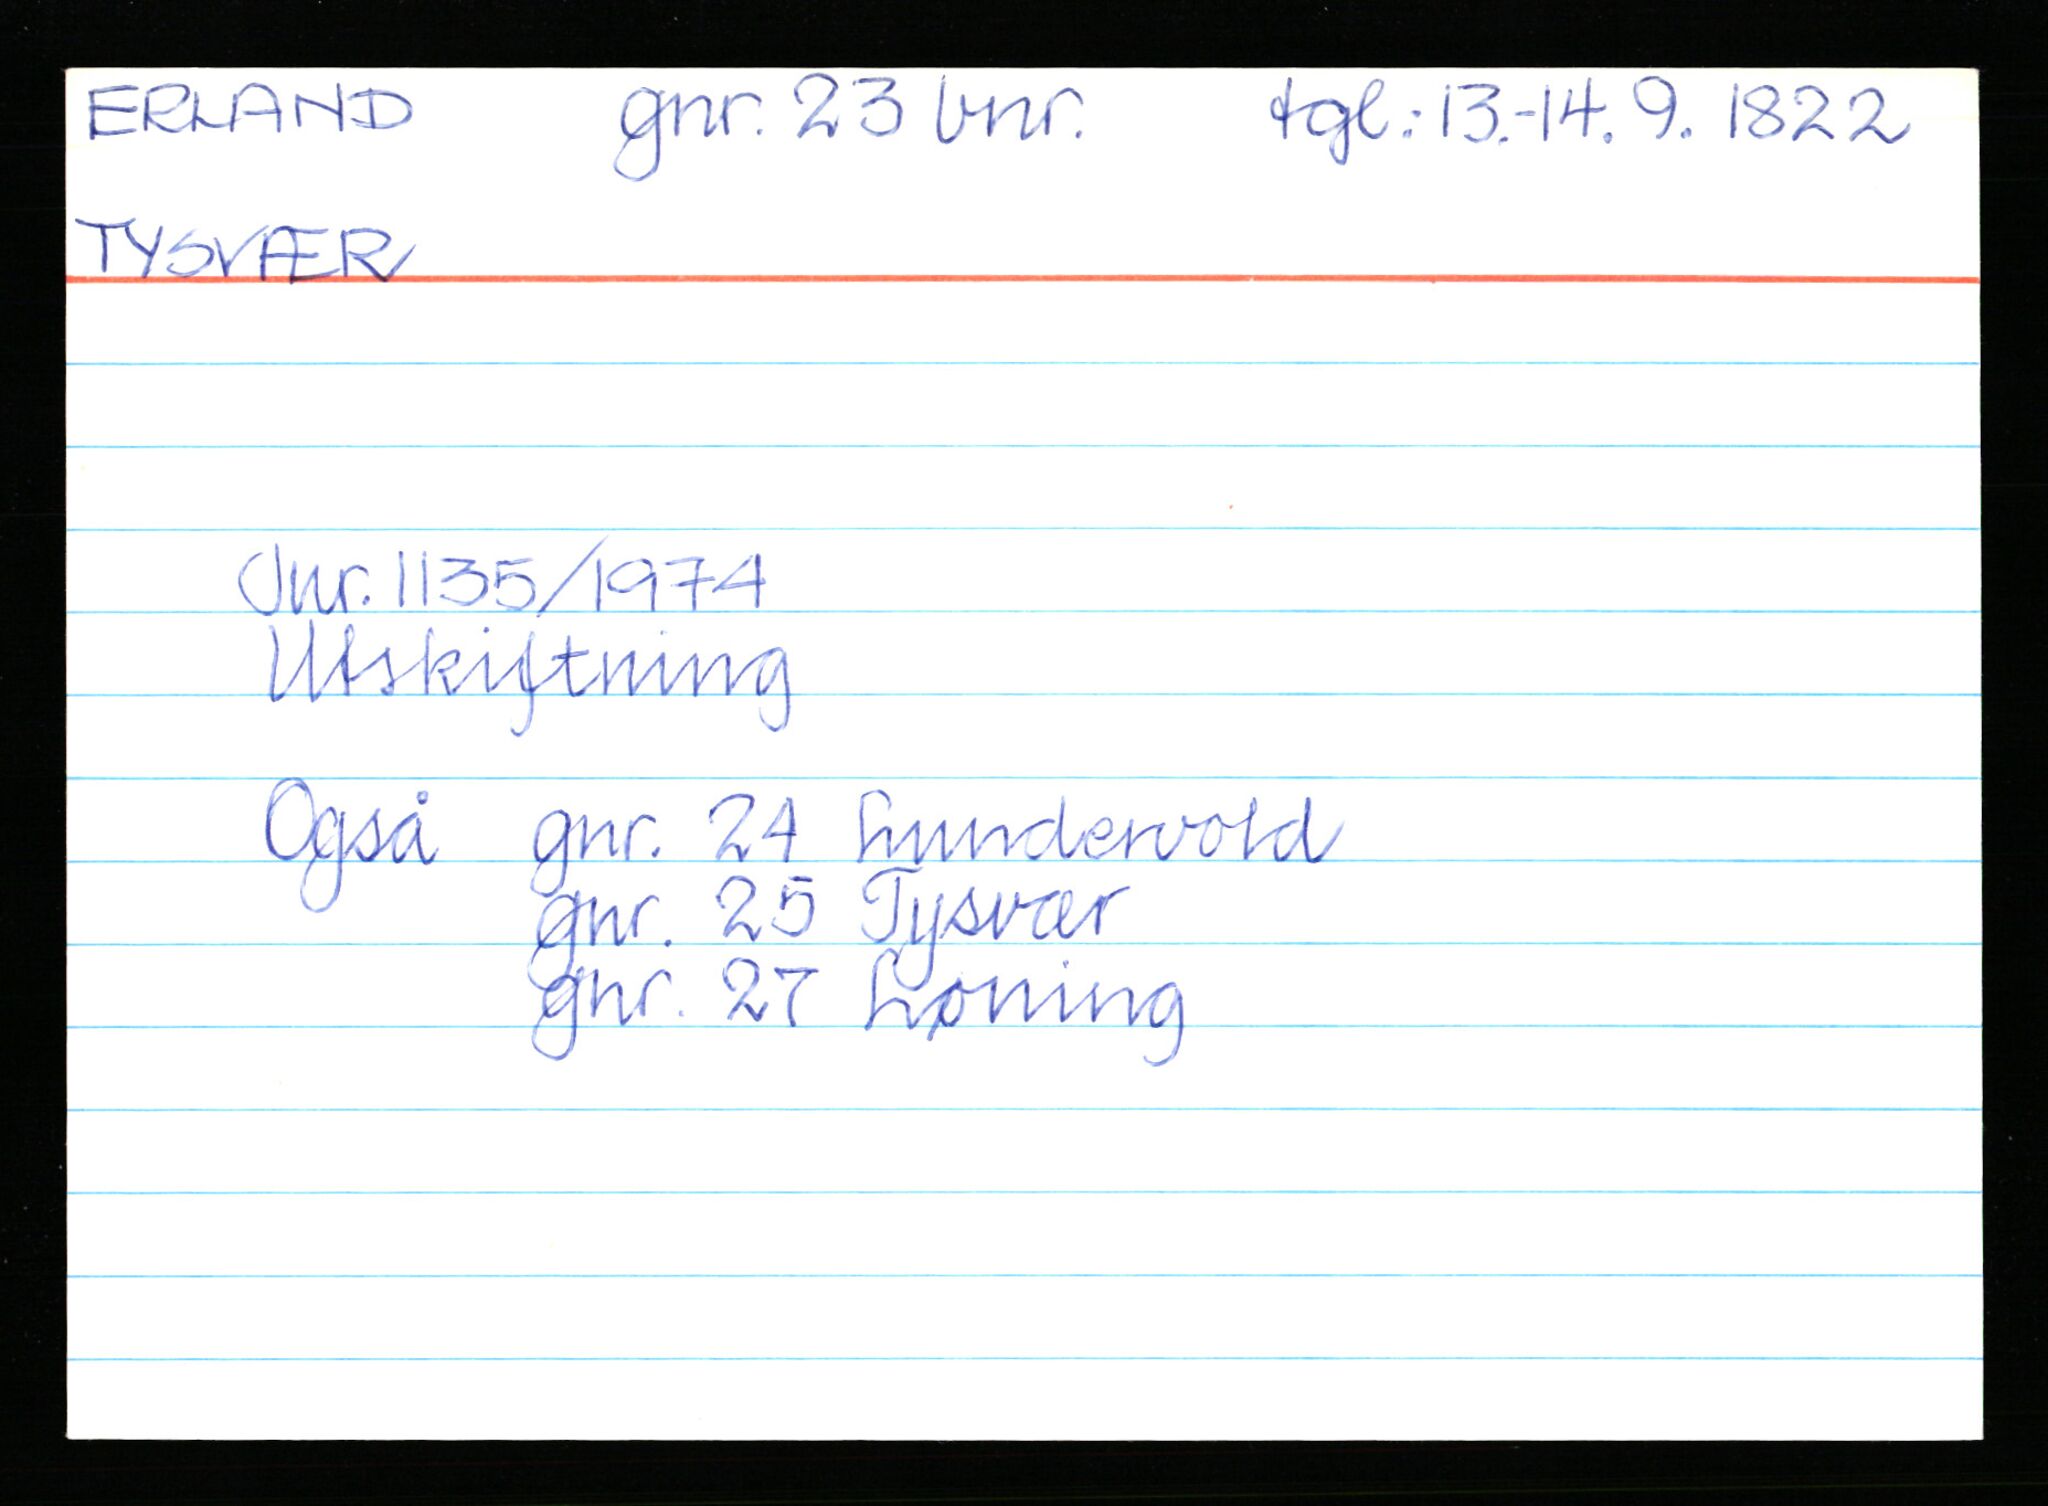 ERLAND gnr. 23 bnr. tgl.: 13.-14. 9. 1822
TYSVÆR
Jnr. 1135/1974
Utskiftning
Også gnr. 24 Lundervold
gnr. 25 Tysvær
gnr. 27 Løning